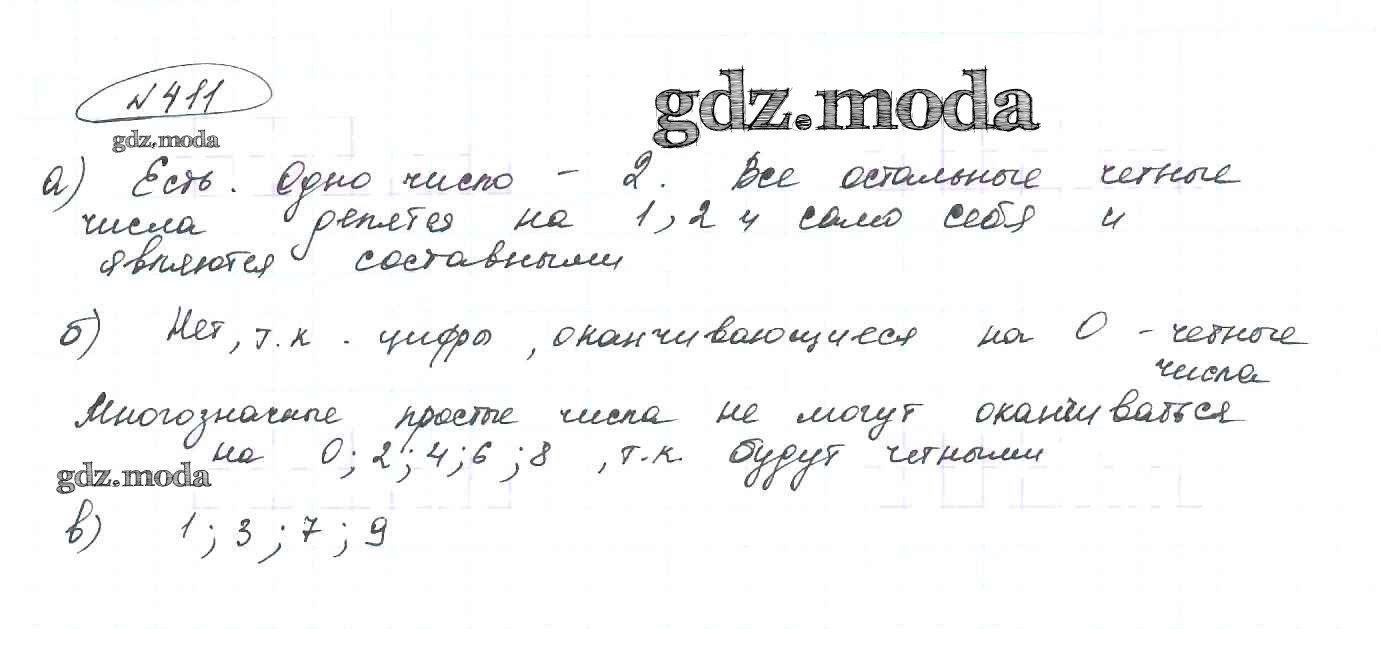 № 411
gdz.moda
gdz.moda
а) Есть. Одно число - 2. Все остальные четные
числа делятся на 1, 2 и само себя и
являются составными
б) Нет, т.к. цифры, оканчивающиеся на 0 - четные
числа
Многозначные простые числа не могут оканчиваться
на 0; 2; 4; 6; 8, т.к. будут четными
gdz.moda
в) 1; 3; 7; 9